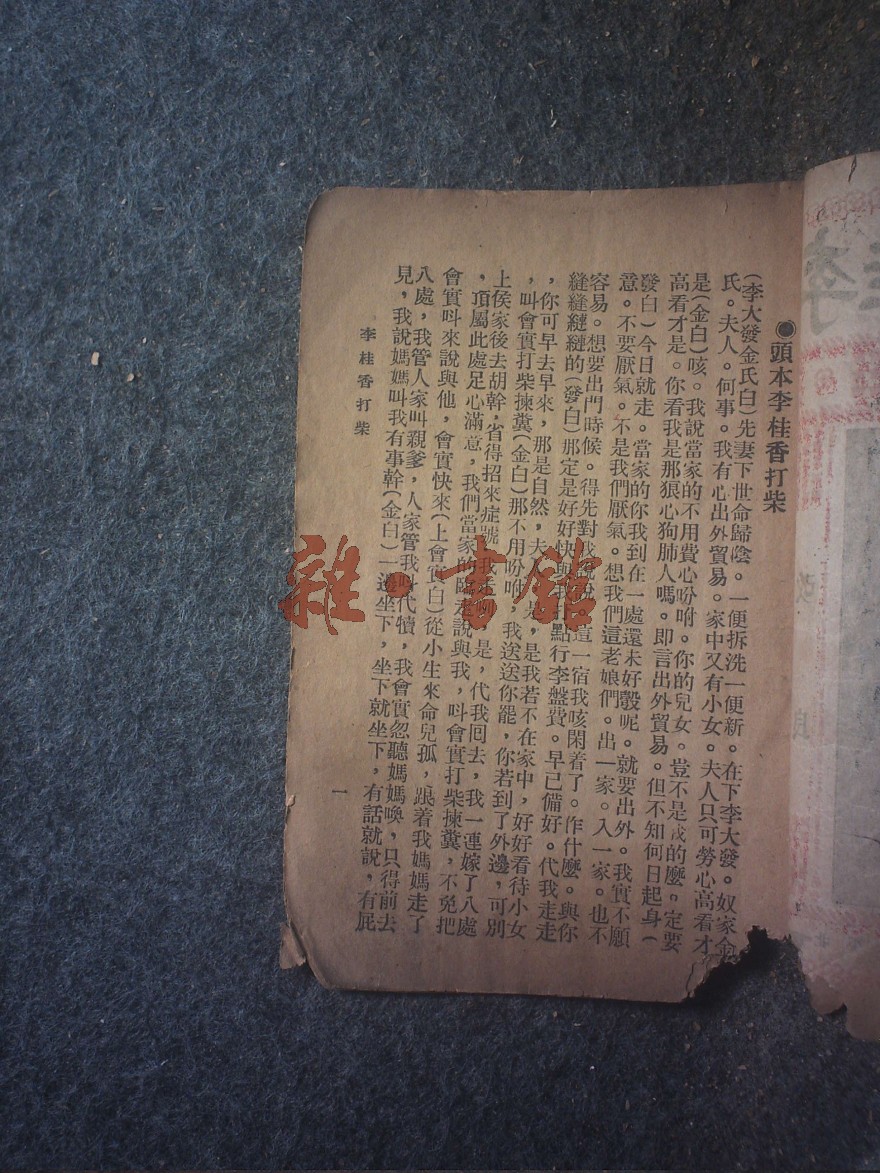 ●頭本李桂香打柴
(李大發金氏白)先妻下世命歸陰。一便拆洗一便新。在下李大發。奴家金
氏。夫人。何事。我有心出外貿易。家中又有小女。夫人只可勞心高看才
是(金白)咳。我說當家的不用費心吩咐。你的兒女。豈不是我的麼。定要
高看才是。你看我是那狠心狗肺人嗎。即言出外貿易。但不知何日起身(
發白)今日就走。當家的你我到在一處還未好彀呢。就要出外。我實不願
意。不要厭氣。不是我們厭氣。想我們這老娘們。出一家。入一家。也不
容易。想要出門時候。得先對我說說。這一宿我咳閑着了。作什麼。與你
縫縫縺縺的(發白)那定是好好快與我打點行李盤費。早已備好。代我走走
,你可早去早來,那是自然,夫人是,是我若不在家中,好好看待小女
,叫會實打柴揀糞(金白)那不用吩咐,我送送你罷,你若到了外邊,可別
上侯家後去胡幹,省得招來症號,我走咧,是,代我回去,我一連嫁了八處
,頂屬此處足心滿意,我們當家的臨走說與我,呌會實打柴揀糞,不免把
會實呌來說與他,會實快來(上會實白)從小生來命兒孤,跟着我媽媽走了
八處,我管人家叫親爹,人家管我呌代犢,我會實忽聽媽媽喚,只得前去
見,我說媽媽叫我有事幹(金白)一邊坐下,坐下就坐下,有話就說,有屁
李桂香打柴
一
雜·書館